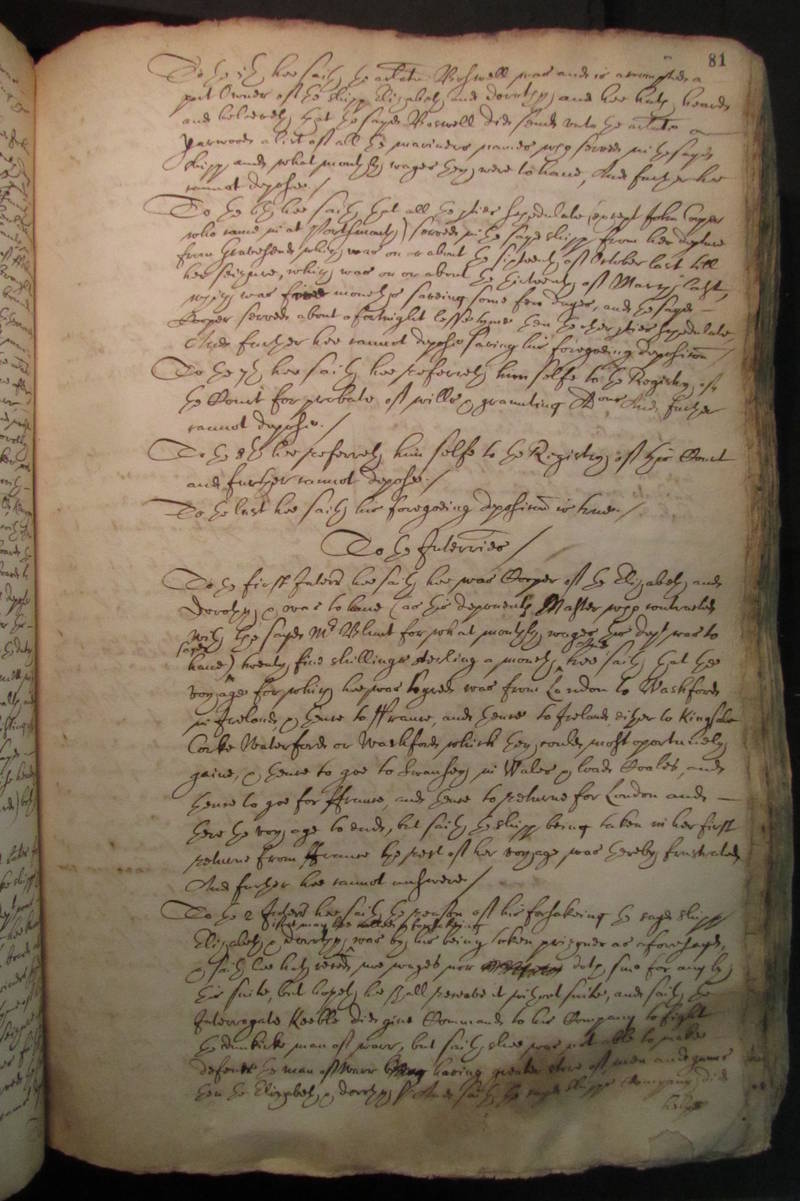 81
To the 5th hee saith the arlate Roswell was and is accompted a
part Owner of the shipp Elizabeth and dorothy, and hee hath heard
and beleeveth that the sayd Roswell did send unto the arlate
Yarwood a list of all the mariners names who served in the sayd
shipp, and what monthly wages they were to have, And further hee
cannot depose./
To the 6th hee saith that all the parties schedulate (except John Cooper
who came in at Portsmouth) served in the sayd shipp from her departure
from Gravesend which was on or about the sixteenth of October last till
her seizure, which was on or about the sixteenth of March last,
which was five moneths saveing some few dayes, and the sayd
Cooper served about a fortnight lesse tyme then the other parties schedulate,
And further hee cannot depose saving his foregoeing deposition /
To the 7th hee saith hee referreth him selfe to the Registry of
the Court for probate of wills & graunting Adcons And further
cannot depose./
To the 8th hee referreth him selfe to the Registry of this Court
and further cannot depose./
To the last hee saith his foregoeing deposition is true./
To the Interries /
To the first Interr hee saith hee was Cooper of the Elizabeth and
Dorothy, & was to have (as this deponents Master who contracted
with the sayd Mr Blunt for what monthly wages this dept was to
have) sayd twenty five shillings sterling a moneth, and hee saith that the
voyages for which hee was hyred was from London to Washford
in Ireland, & thence to ffrance, and thence to Ireland either to Kingsale
Corke Waterford or Washford which they could most oportunely
gaine, & thence to goe to Swansey in Wales & load Coales, and
thence to goe for ffrance, and thence to returne for London and
there the voyage to end, but saith the shipp being taken in her first
returne from ffrance the rest of her voyage was thereby frustrated
And further hee cannot answere./
To the 2 Interr hee saith the reason of his forsakeing the sayd shipp
Elizabeth & Dorothy, was by his being taken prisoner as aforesayd,
& saith hee hath received noe wages nor doth sue for any by
this suite, but hopeth hee shall receave it without suite, and saith the
Interrogate Keeble did give Command to his Company to fight
the dunkirke man of warr, but saith shee was not able to make
defence the man of warr having greater store of men and gunns
then the Elizabeth & dorothy, And saith the sayd shipps Company did